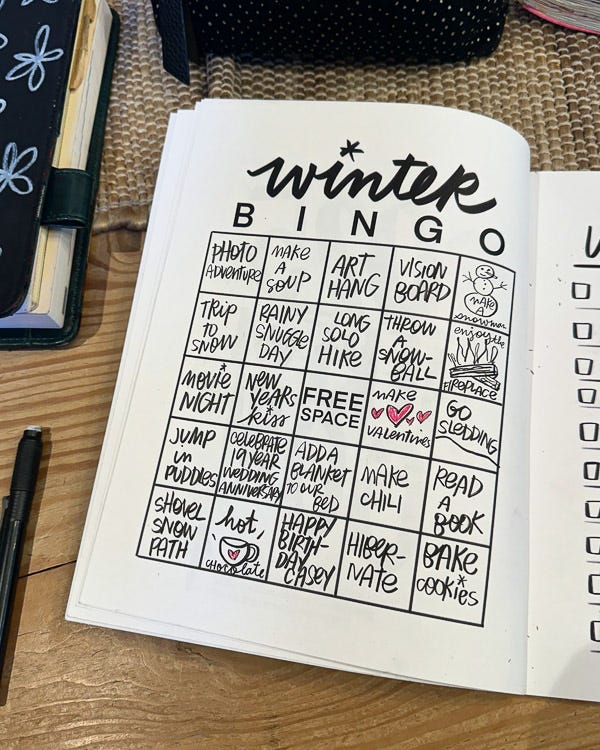 winter
B I N G O
PHOTO
ADVENTURE
MAKE
A
SOUP
ART
HANG
VISION
BOARD
MAKE
A
snowman
TRIP
TO
SNOW
RAINY
SNUGGLE
DAY
LONG
SOLO
HIKE
THROW
A
SNOW-
BALL
enjoy the
FIREPLACE
MOVIE
NIGHT
NEW
YEARS
kiss
FREE
SPACE
MAKE
VALENTINES
GO
SLEDDING
JUMP
in
PUDDLES
CELEBRATE
19 YEAR
WEDDING
ANNIVERSARY
ADD A
BLANKET
TO OUR
BED
MAKE
CHILI
READ
A
BOOK
SHOVEL
SNOW
PATH
hot
chocolate
HAPPY
BIRTH-
DAY
CASEY
HIBER-
NATE
BAKE
COOKIES